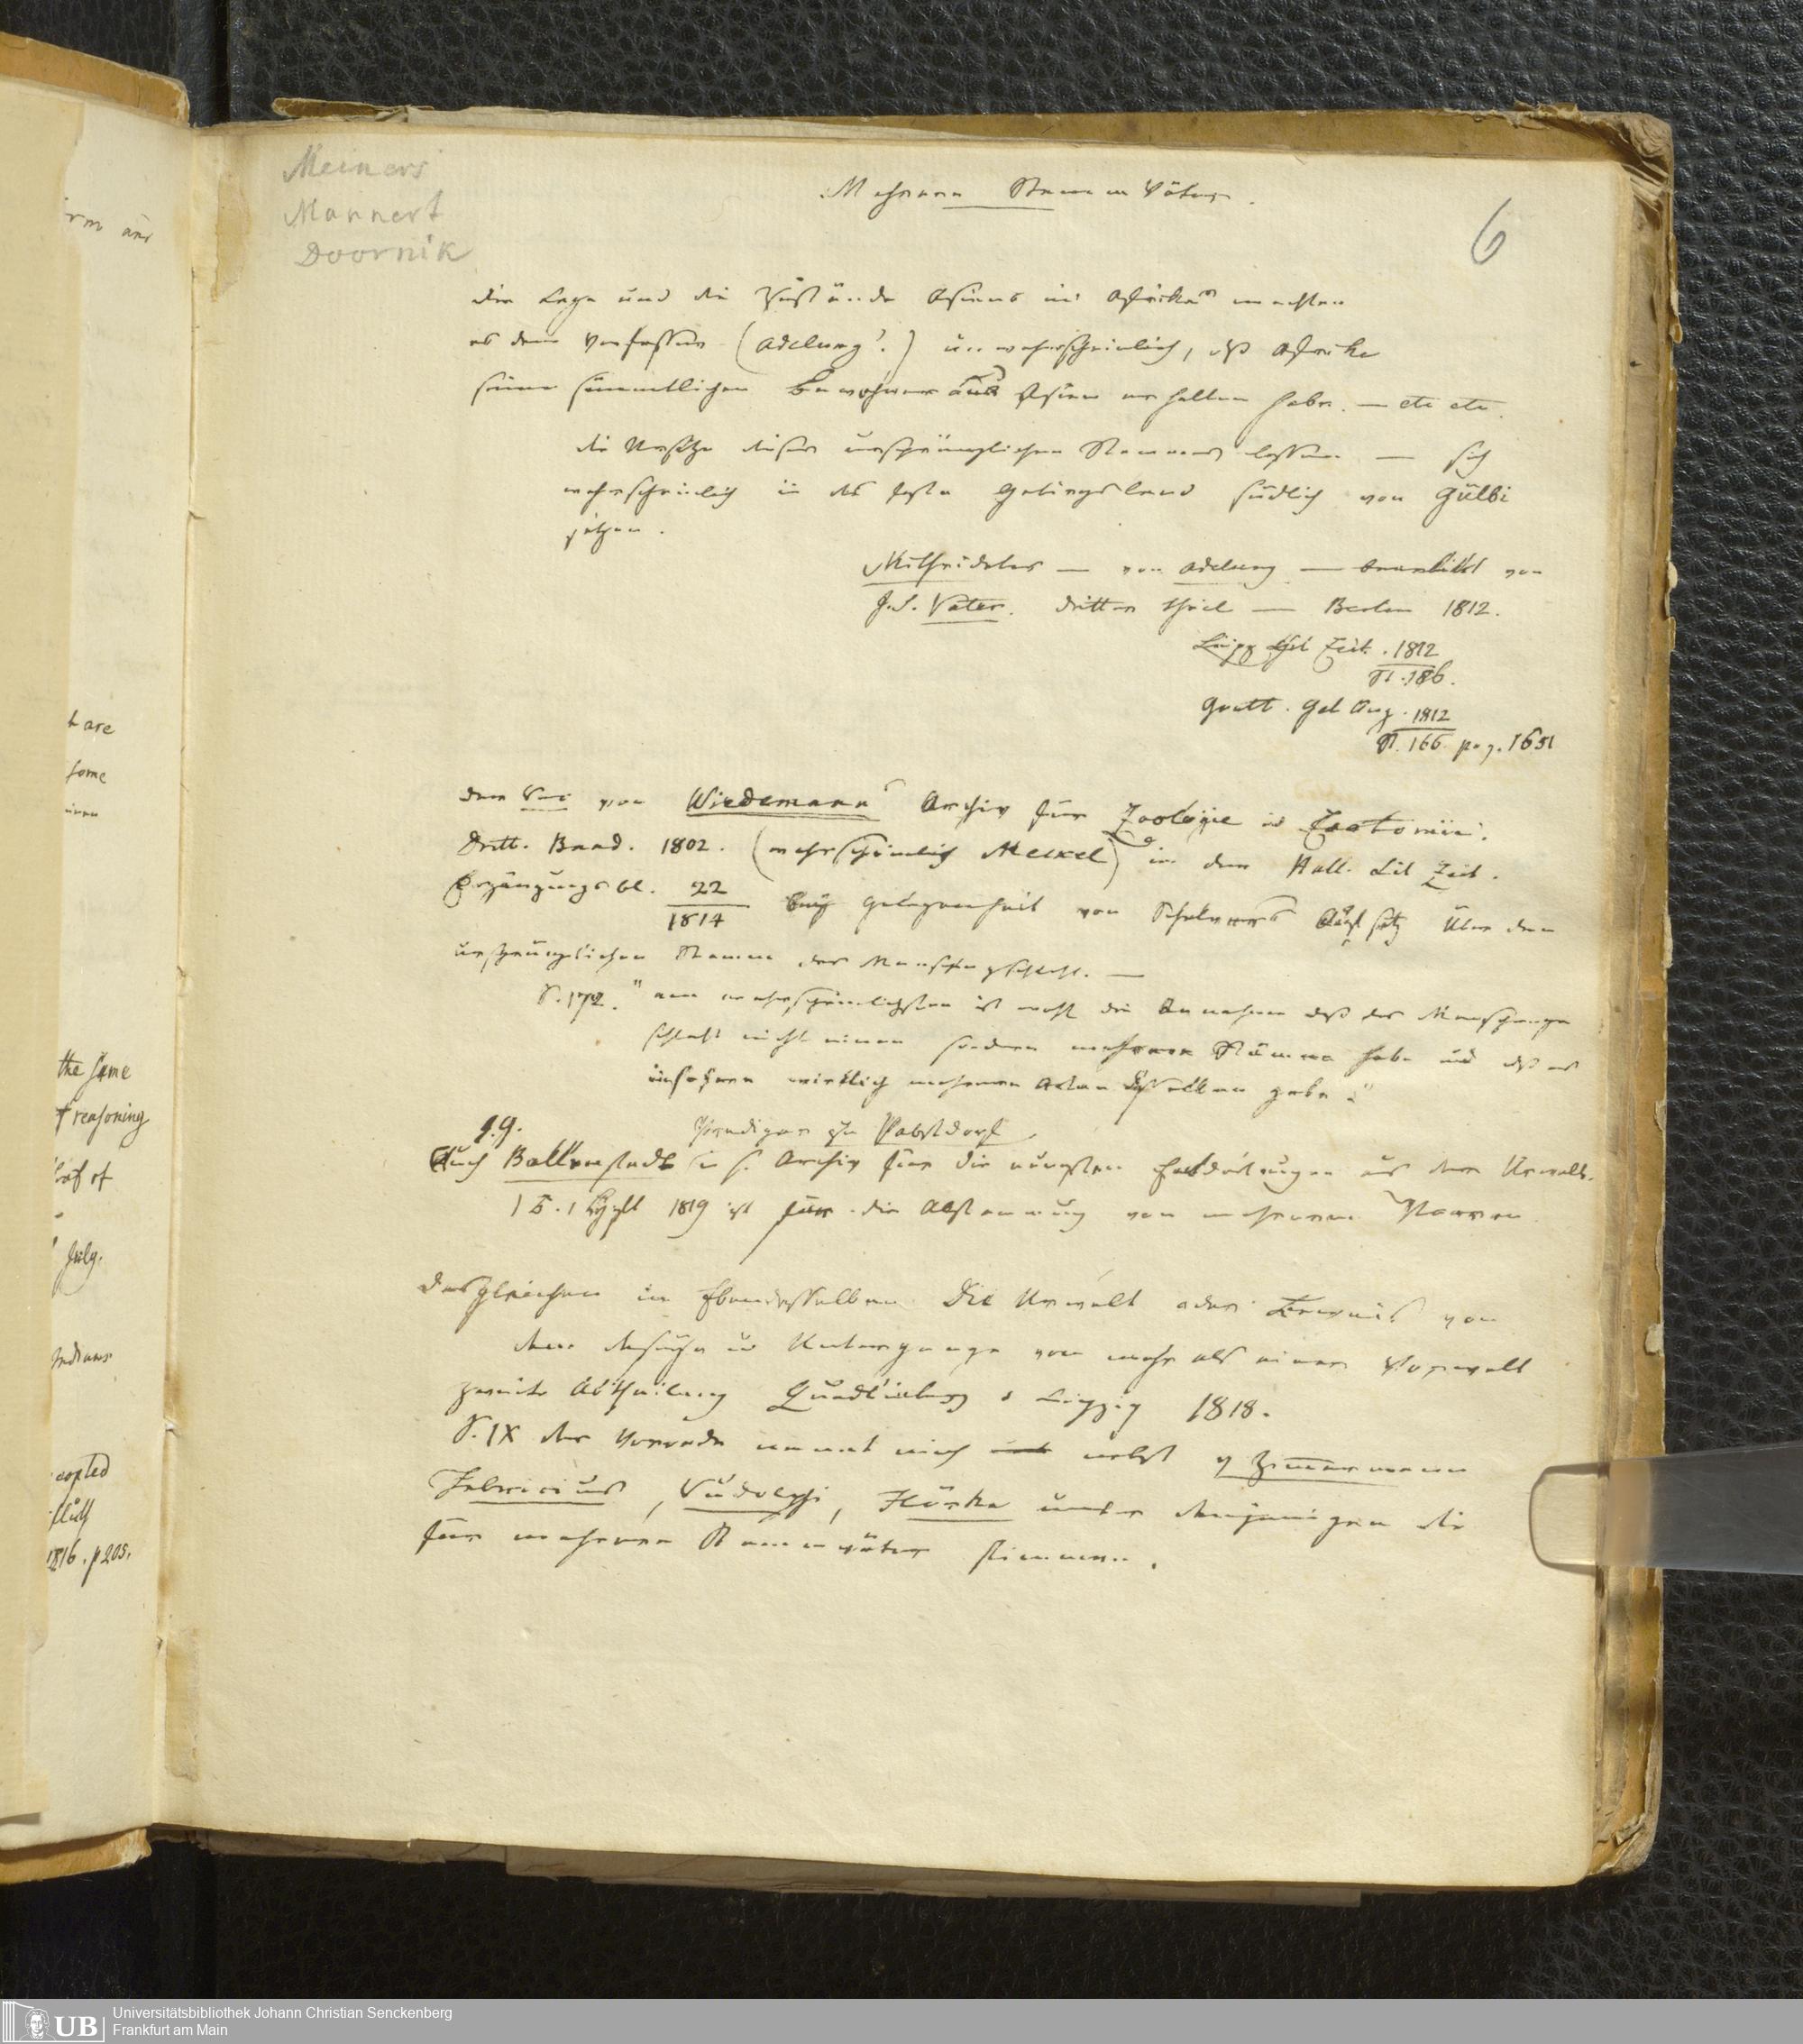 Meiners
Mannert
Doornik
Mehrere Stammväter.
6
die Lage und die Zustände Asiens und Afrikas machten
es dem Verfasser (Adelung?) unwahrscheinlich, daß Afrika
seine sämmtlichen Bewohner aus Asien erhalten habe. — etc etc.
die Ursitze dieser ursprünglichen Stammes lassen — sich
wahrscheinlich in das hohe Gebirgsland südlich von
setzen.
Mithridates — von Adelung — von
J.S. Vater. dritter Theil — Berlin 1812.
Leipz Zeit. 1812
St. 186.
Goett. Gel Anz. 1812
St. 166. pag. 1651
der von Wiedemanns Archiv für Zoologie u Zootomie.
Dritt. Band. 1802. (wahrscheinlich Meckel) in der Hall. Lit Zeit.
Ergänzungsbl. 22/1814 bey Gelegenheit von Aufsatz über den
ursprünglichen Stamm des Menschengeschlecht. —
S. 172. "am wahrscheinlichsten ist wohl die Annahme daß das Menschenge
schlecht nicht einen sondern mehrere Stämme habe und daß es
insofern wirklich mehrere Arten desselben gebe."
J.G.
Prediger zu Pabstdorf
Auch Ballenstedt in s. Archiv für die neuesten Entdeckungen aus der Urwelt.
1 B. 1 Heft 1819 ist für die Abstammung von mehreren Paaren
desgleichen in Ebendesselben Die Urwelt oder Beweis von
dem Daseyn u Untergange von mehr als einer Vorwelt
zweite Abtheilung Quedlinburg & Leipzig 1818.
S. IX der Vorrede nennt mich nebst v Zimmermann
Fabricius, Rudolphi, unter denjenigen die
für mehrere Stammväter stimmen.
t are
some
the same
f reasoning
of
July.
Indians
copted
1816. p 205.
UB
Universitätsbibliothek Johann Christian Senckenberg
Frankfurt am Main